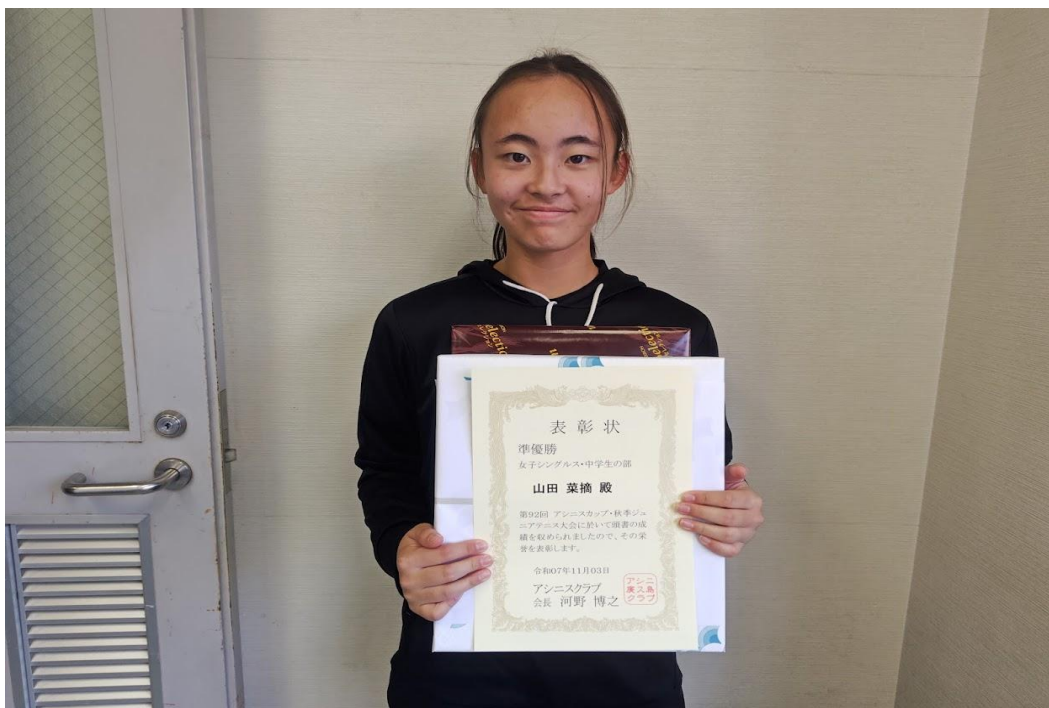 election
Selecti
表彰状
準優勝
女子シングルス・中学生の部
山田 菜摘 殿
第92回 アシニスカップ・秋季ジュ
ニアテニス大会に於いて頭書の成
績を収められましたので、その栄
誉を表彰します。
令和07年11月03日
アシニスクラブ
会長 河野 博之
アシニ
広ス島
クラブ